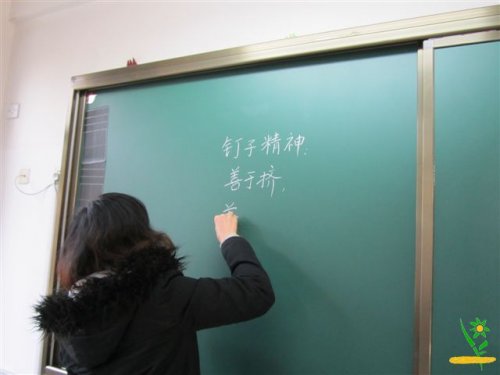 钉子精神:
善于挤,